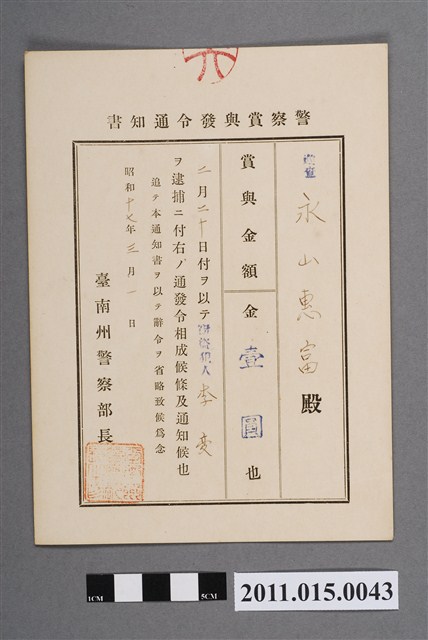 警察賞與發令通知書
巡査 永山惠富 殿
賞與金額 金壹圓也
二月二十日付ヲ以テ竊盜犯人 李変
ヲ逮捕ニ付右ノ通發令相成候條及通知候也
追テ本通知書ヲ以テ辭令ヲ省略致候爲念
昭和十七年三月一日
臺南州警察部長
1CM
5CM
2011.015.0043